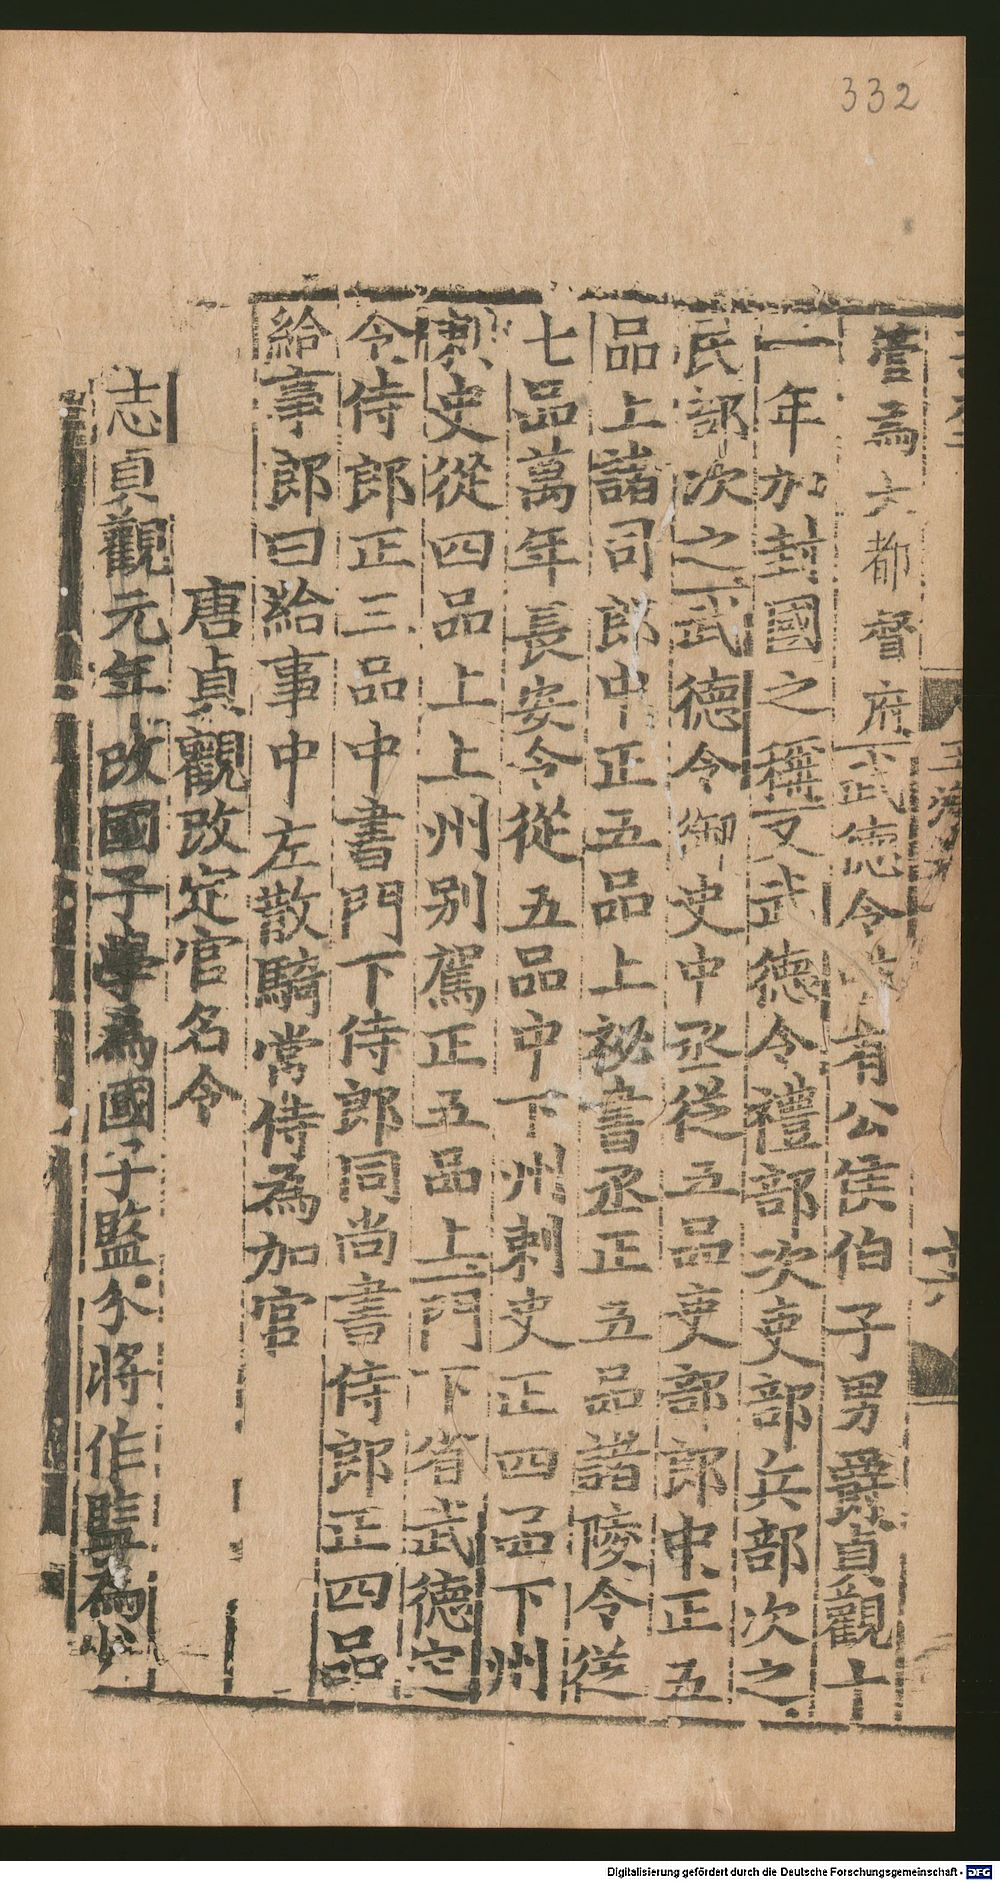 332
管為大都督府武德令唯有公侯伯子男爵貞觀十
一年加封國之稱又武德令禮部次吏部兵部次之
民部次之武德令御史中丞從五品吏部郎中正五
品上諸司郎中正五品上祕書丞正五品諸陵令從
七品萬年長安令從五品中下州刺史正四品下州
刺史從四品上上州別駕正五品上門下省武德定
令侍郎正三品中書門下侍郎同尚書侍郎正四品
給事郎曰給事中左散騎常侍為加官
唐貞觀改定官名令
志貞觀元年改國子學為國子監分將作監為少
Digitalisierung gefördert durch die Deutsche Forschungsgemeinschaft - DFG